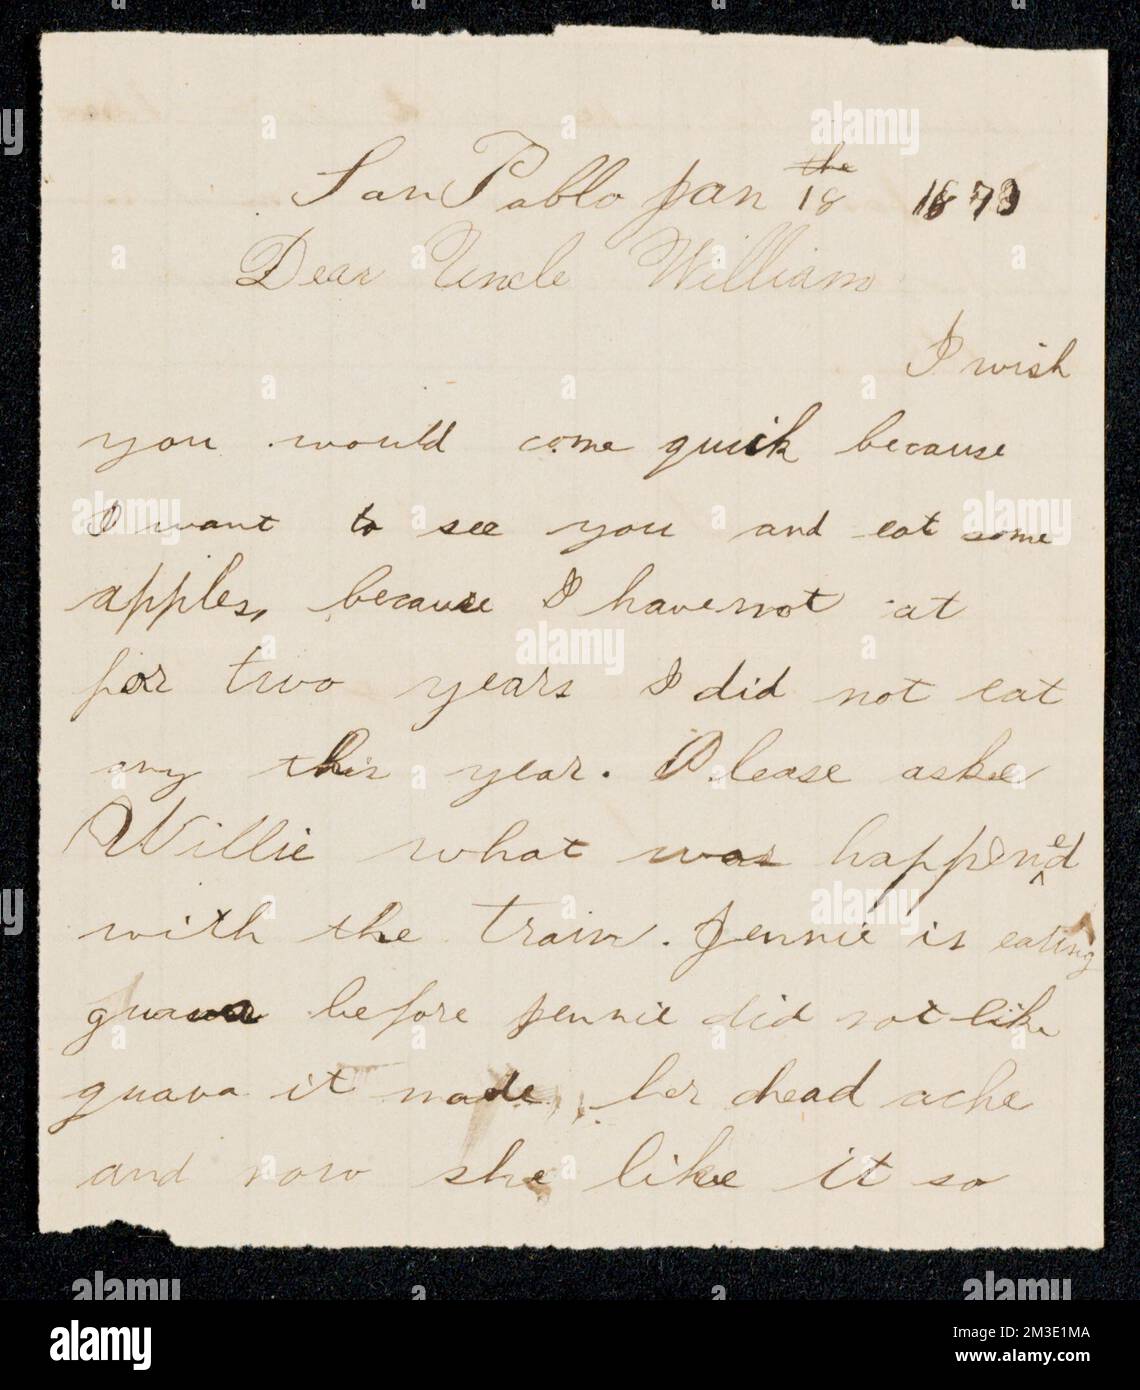 San Pablo Jan 18 the 1873
Dear Uncle William
I wish
you would come quick because
I want to see you and eat some
apples, because I have not at
for two years I did not eat
any this year. Please aske
Willie what was happened
with the train. Jennie is eating
guava before Jennie did not like
guava it made her head ache
and now she like it so
alamy
Image ID: 2M3E1MA
www.alamy.com